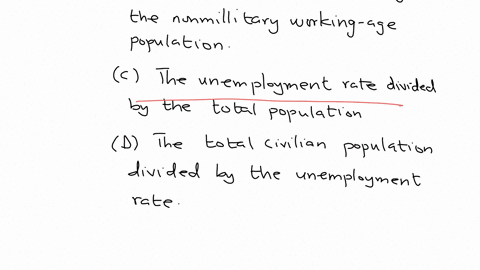 the nonmillitary working-age
population.
(C) The unemployment rate divided
by the total population
(D) The total civilian population
divided by the unemployment
rate.